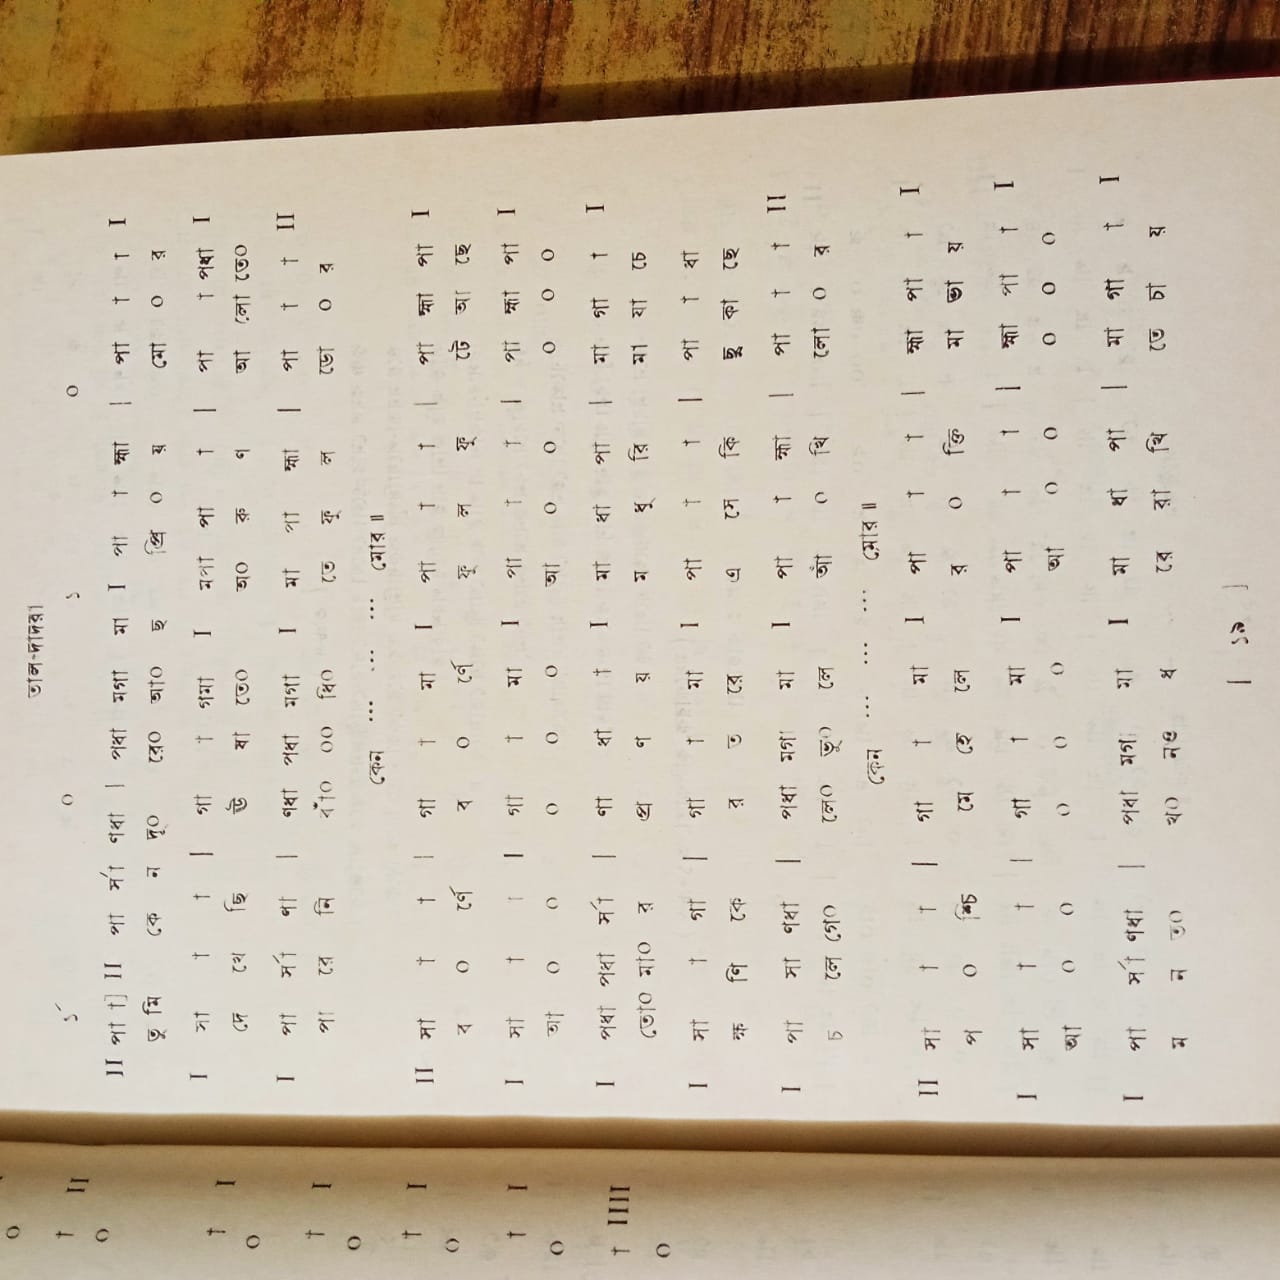 তাল-দাদরা
১´ ০ ১ ০
II পা া] II পা র্সা ণধা | পধা মগা মা I পা া হ্মা | পা া া I
তু মি কে ন দূ০ রে০ আ০ ছ প্রি ০ য় মো ০ র
I সা া া া | গা া গমা I মপা পা া | পা া পধা I
দে খে ছি ঊ ষা তে০ অ০ রু ণ আ লো তে০
I পা র্সা ণা | ণধা পধা মগা I মা পা হ্মা | পা া া II
পা রে নি বাঁ০ ০০ ধি০ তে ফু ল ডো ০ র
কেন ... ... ... মোর ॥
II সা া া | গা া মা I পা া া | পা হ্মা পা I
ব ০ র্ণে ব ০ র্ণে ফু ল ফু টে আ ছে
I সা া া | গা া মা I পা া া | পা হ্মা পা I
আ ০ ০ ০ ০ ০ আ ০ ০ ০ ০ ০
I পধা পধা র্সা | ণা ধা া I মা ধা পা | মা গা া I
তো০ মা০ র প্র ণ য় ম ধু রি মা যা চে
I সা া গা | গা া মা I পা া া | পা া ধা I
ক্ষ ণি কে র ত রে এ সে কি ছু কা ছে
I পা সা ণধা | পধা মগা মা I পা া হ্মা | পা া া II
চ লে গে০ লে০ ভু০ লে আঁ ০ খি লো ০ র
কেন ... ... ... মোর ॥
II সা া া | গা া মা I পা া া | হ্মা পা া I
প ০ শ্চি মে হে লে র ০ ক্তি মা ভা য়
I সা া া | গা া মা I পা া া | হ্মা পা া I
আ ০ ০ ০ ০ ০ আ ০ ০ ০ ০ ০
I পা র্সা ণধা | পধা মগা মা I মা ধা পা | মা গা া I
ম ন ত০ খ০ ন৩ ধ রে রা খি তে চা য়
[ ১৯ ]
০
া II
০
া I
০
া I
০
া I
০
া I
০
া IIII
০